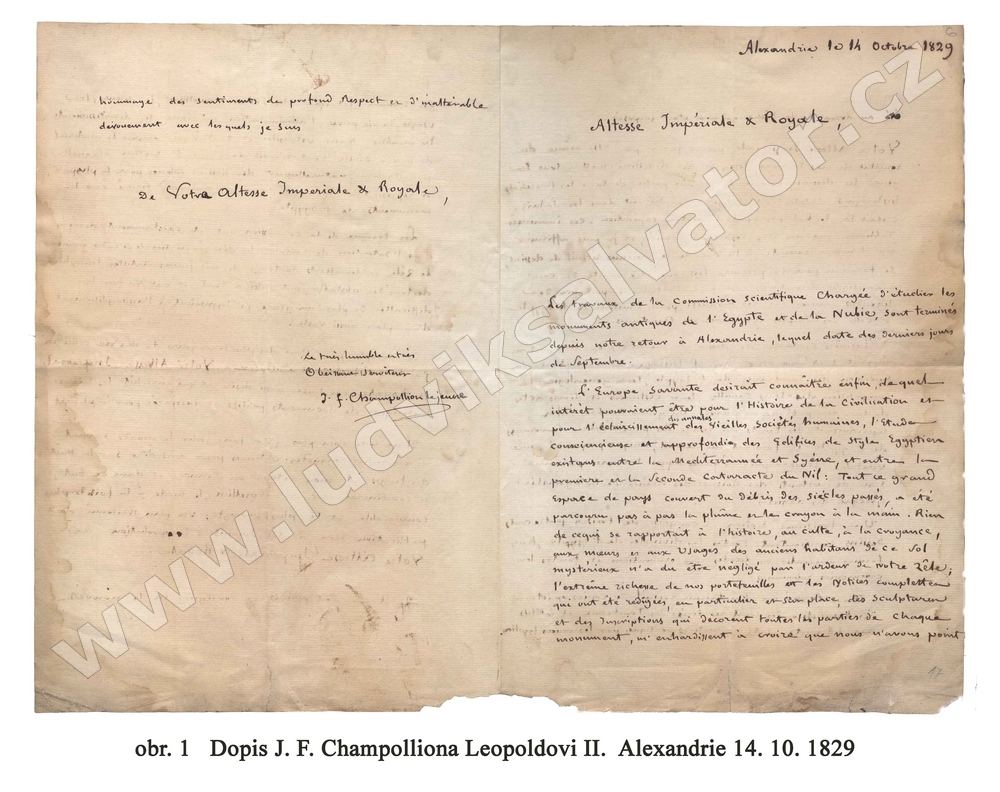 hommage des sentiments de profond Respect et d'inaltérable
dévouement avec lesquels je suis
De Votre Altesse Imperiale & Royale,
Le très humble et très
Obéissant Serviteur
J. f. Champollion le jeune
6
Alexandrie le 14 Octobre 1829
Altesse Impériale & Royale,
Les travaux de la Commission scientifique Chargée d'étudier les
monuments antiques de l'Egypte et de la Nubie, sont terminés
depuis notre retour à Alexandrie, lequel date des derniers jours
de Septembre.
L'Europe Savante desirait connaître enfin, de quel
intérêt pouvaient être pour l'Histoire de la Civilisation et
pour l'éclaircissement des annales des Vieilles Sociétés humaines, l'Etude
consciencieuse et approfondie des Edifices de Style Egyptien
existans entre la Mediterrannée et Syène, et entre la
premiere et la Seconde Cataracte du Nil: Tout ce grand
Espace de pays couvert du débris des Siècles passés, a été
parcouru pas à pas la plume et le crayon à la main. Rien
de cequi se rapportait à l'histoire, au culte, à la croyance,
aux mœurs et aux Usages des anciens habitans de ce Sol
mystérieux n'a dû être négligé par l'ardeur de notre Zèle;
l'extrême richesse de nos portefeuilles et les Notices complettes
qui ont été rédigées, en particulier et sur place, des Sculptures
et des Inscriptions qui décorent toutes les parties de Chaque
monument, m'enhardissent à croire que nous n'avons point
17
www.ludviksalvator.cz
obr. 1 Dopis J. F. Champolliona Leopoldovi II. Alexandrie 14. 10. 1829